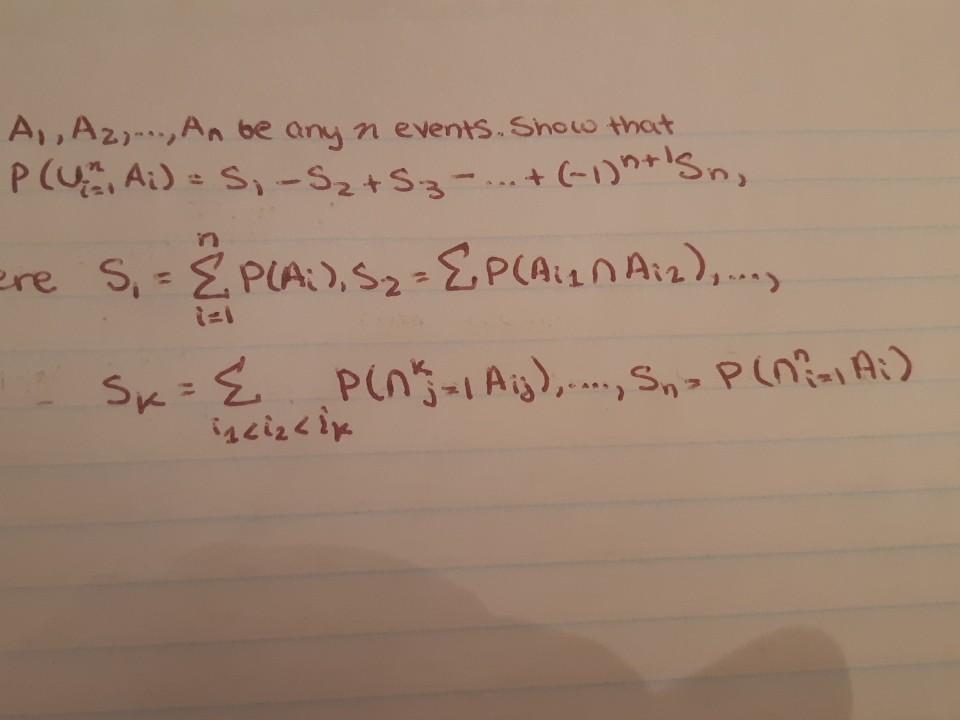 A₁, A₂, ..., Aₙ be any n events. Show that
P(∪ⁿᵢ₌₁ Aᵢ) = S₁ - S₂ + S₃ - ... + (-1)ⁿ⁺¹Sₙ,
ere S₁ = Σⁿᵢ₌₁ P(Aᵢ), S₂ = ΣP(Aᵢ₁ ∩ Aᵢ₂), ...,
Sₖ = Σ_{i₁<i₂<iₖ} P(∩ᵏⱼ₌₁ A_{ij}), ...., Sₙ = P(∩ⁿᵢ₌₁ Aᵢ)